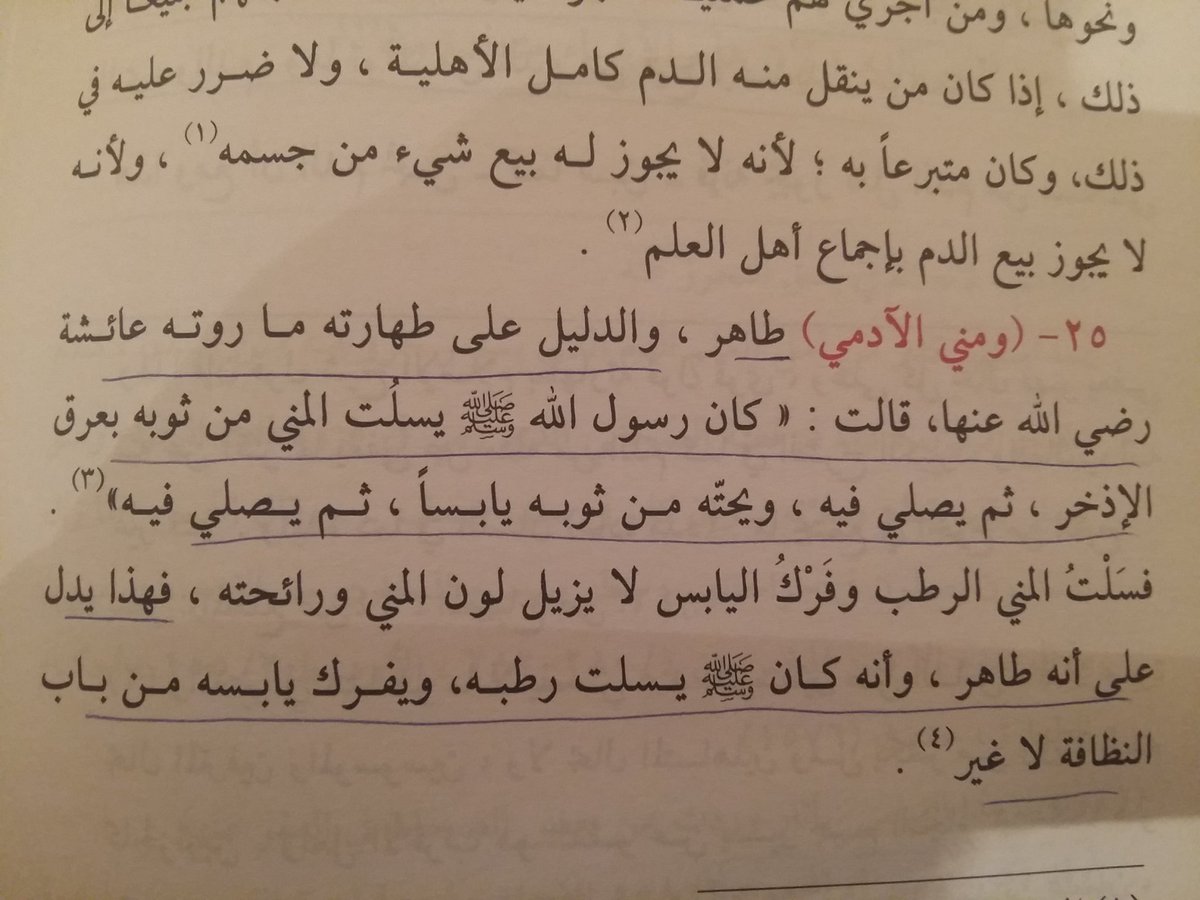 ونحوها ، ومن أجري لهم
ذلك ، إذا كان من ينقل منه الدم كامل الأهلية ، ولا ضرر عليه في
ذلك، وكان متبرعاً به ؛ لأنه لا يجوز له بيع شيء من جسمه(١) ، ولأنه
لا يجوز بيع الدم بإجماع أهل العلم(٢) .
٢٥- (ومني الآدمي) طاهر ، والدليل على طهارته ما روته عائشة
رضي الله عنها، قالت : « كان رسول الله ﷺ يسلُت المني من ثوبه بعرق
الإذخر ، ثم يصلي فيه ، ويحتّه من ثوبه يابساً ، ثم يصلي فيه»(٣) .
فسَلْتُ المني الرطب وفَرْكُ اليابس لا يزيل لون المني ورائحته ، فهذا يدل
على أنه طاهر ، وأنه كان ﷺ يسلت رطبه، ويفرك يابسه من باب
النظافة لا غير(٤) .